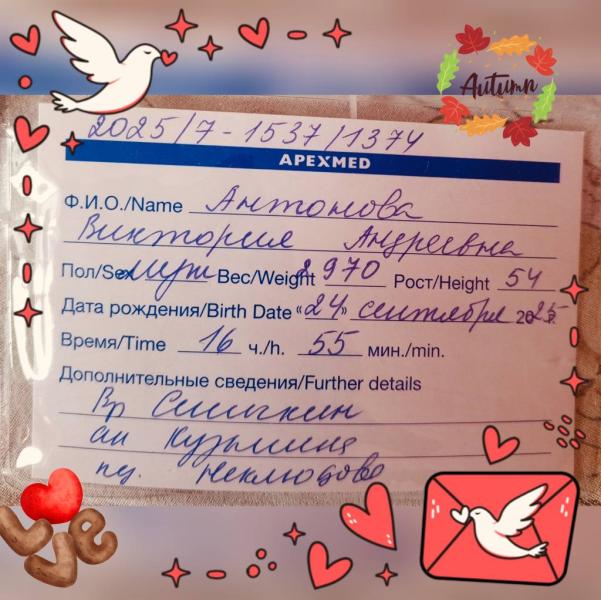 Autumn
2025/7-1537/1374
APEXMED
Ф.И.О./Name Антонова
Виктория Андреевна
Пол/Sex муж Вес/Weight 2970 Рост/Height 54
Дата рождения/Birth Date «24» сентября 2025 г.
Время/Time 16 ч./h. 55 мин./min.
Дополнительные сведения/Further details
Вр Сишкин
ак Кузьмина
пд. Неклюдова
Love